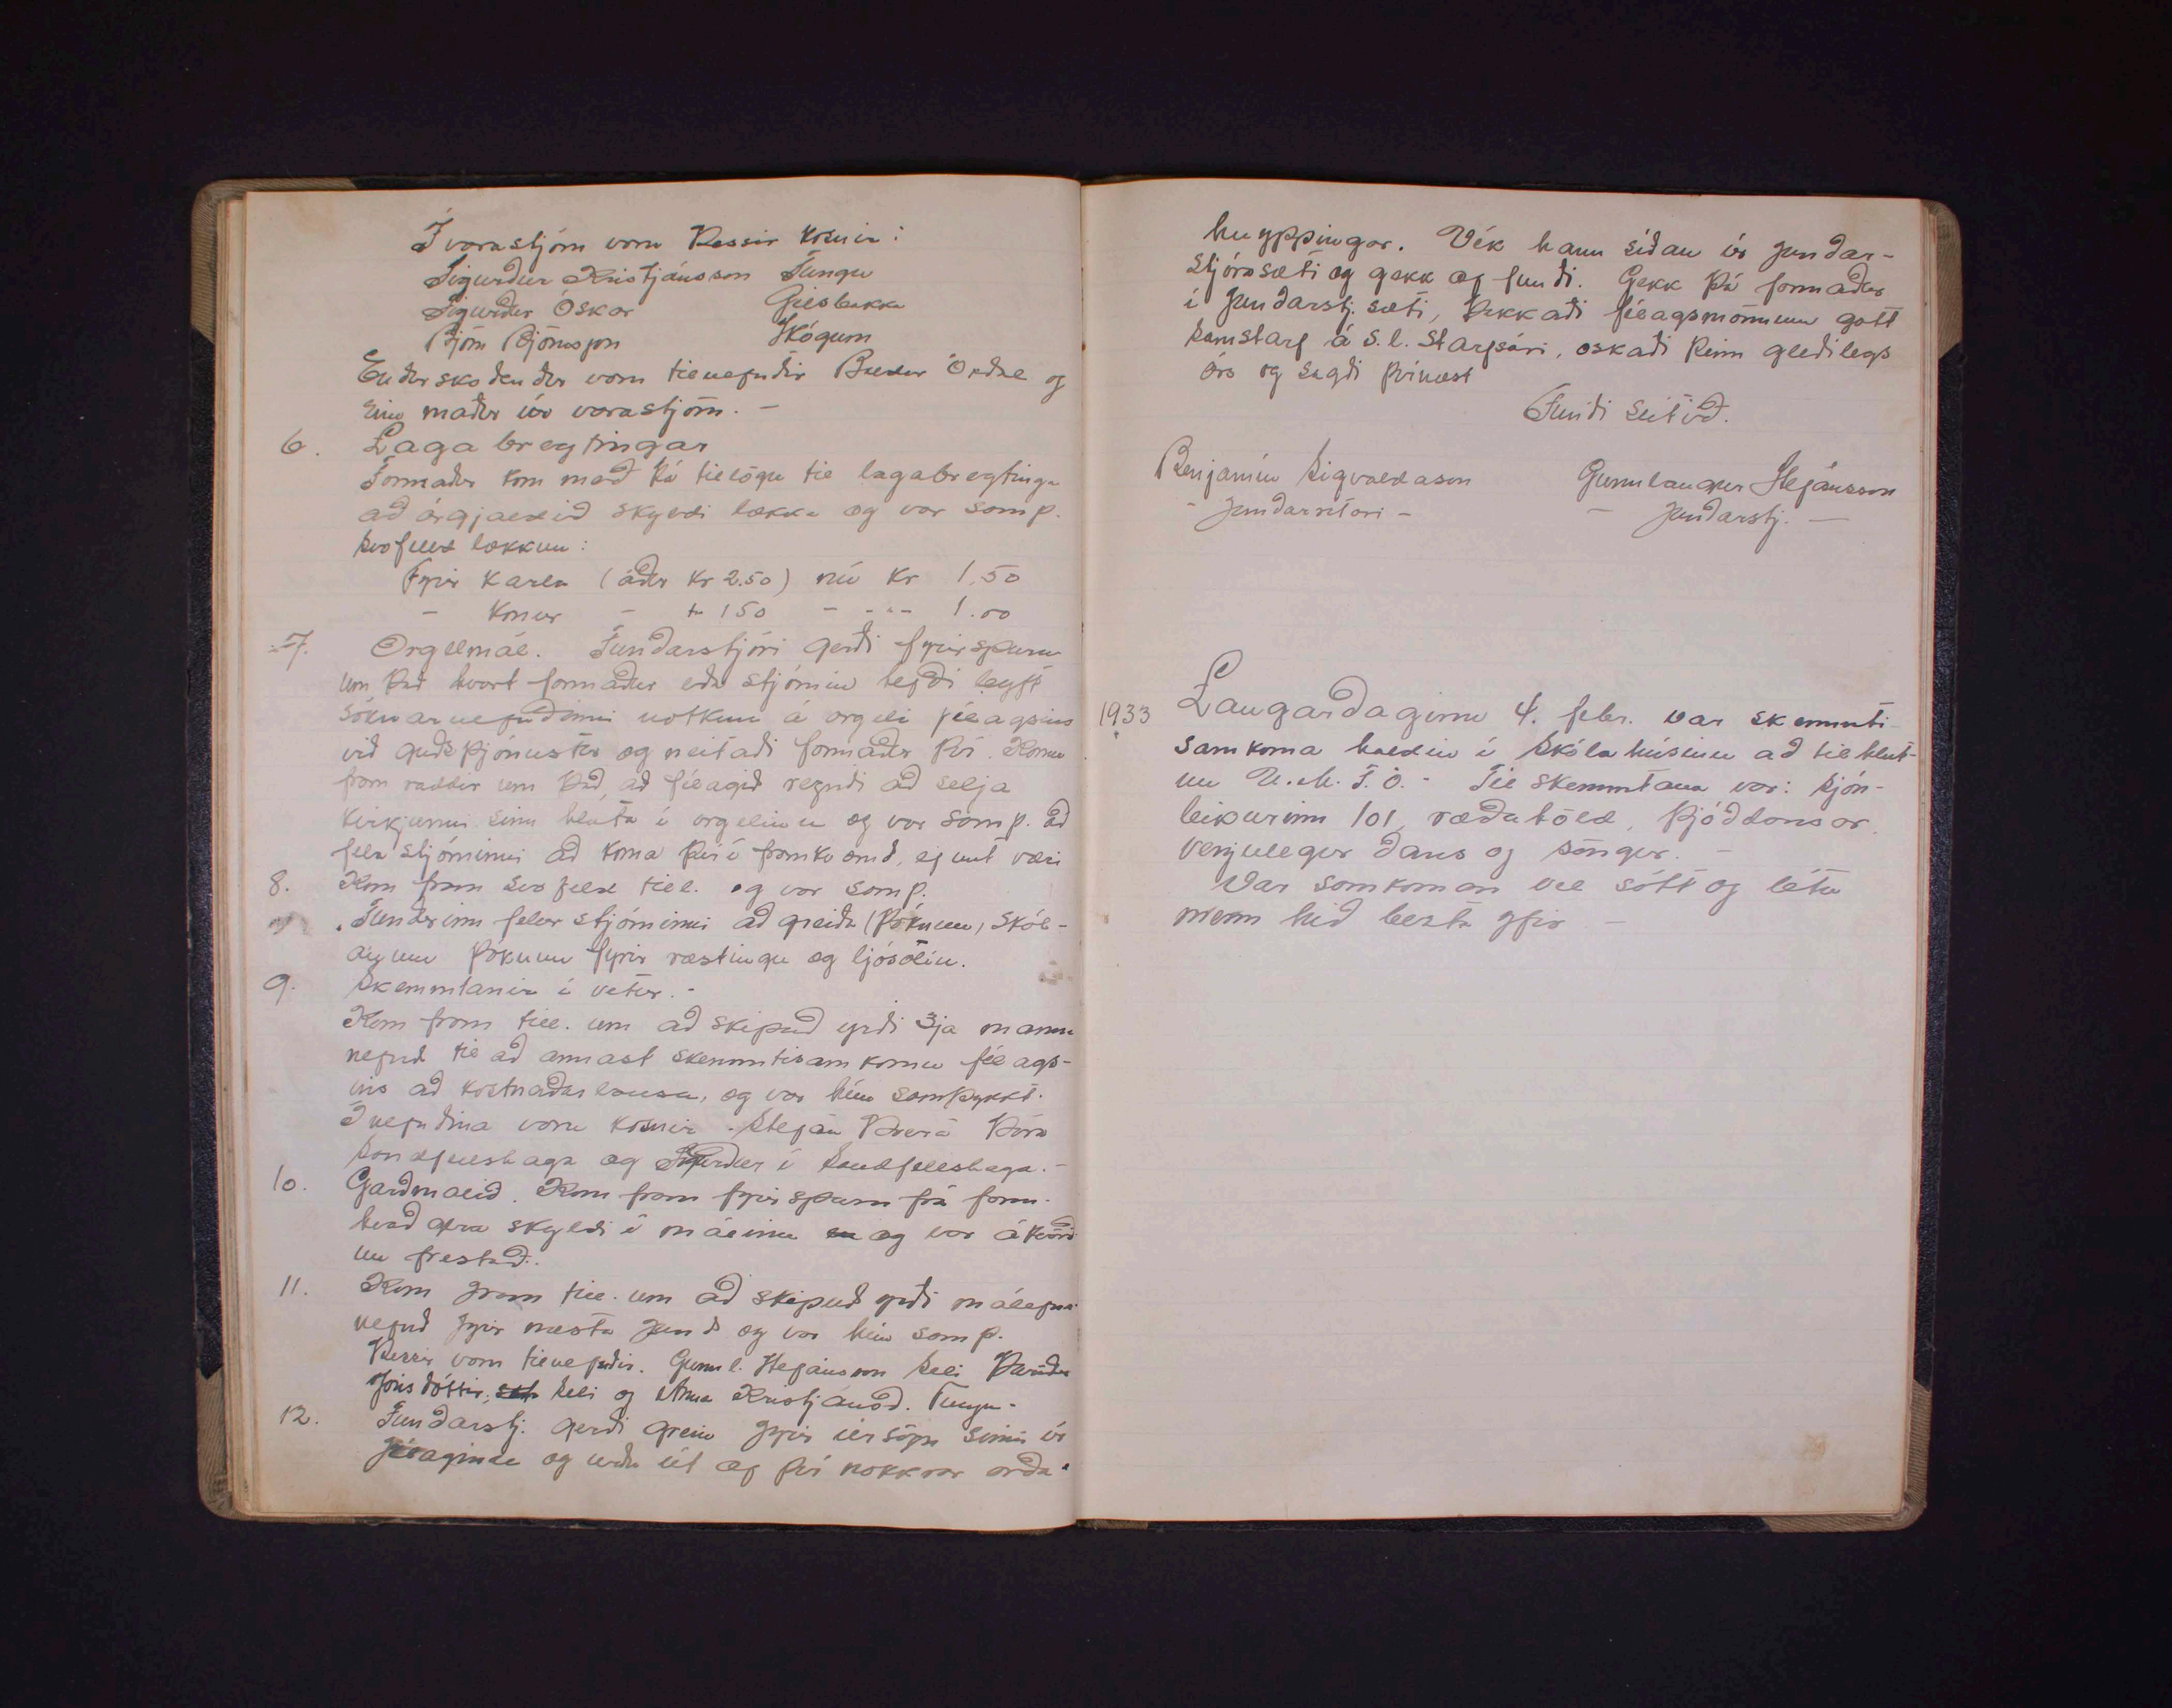 Í varastjórn voru þessir kosnir:
Sigurður Kristjánsson Tungu
Sigurður Óskar Gilsbakka
Björn Björnsson Skógum
Endurskoðendur voru tilnefndir og
einn maður úr varastjórn. -
6. Lagabreytingar
Formaður kom með þá tillögu til lagabreytinga
að árgjaldið skyldi lækka og var samþ.
svofeld lækkun:
Fyrir karla (áður kr 2.50) nú kr 1.50
- konur - - 150 - - " - 1.00
7. Orgelmál. Fundarstjóri gerði fyrirspurn
um það hvort formaður eða stjórnin hefði leyft
sóknarnefndinni notkun á orgeli félagsins
við guðsþjónustur og neitaði formaður því. Komu
fram raddir um það, að félagið reyndi að selja
kirkjunni sinn hluta í orgelinu og var samþ. að
fela stjórninni að koma því í framkvæmd, ef unt væri
8. Kom fram svo feld till. og var samþ.
Fundurinn felur stjórninni að greiða (Þökuum) Skól-
anum þóknun fyrir ræstingu og ljósolíu.
9. Skemmtanir í vetur. -
Kom fram till. um að skipuð yrði 3ja manna
nefnd til að annast skemmtisamkomu félags-
ins að kostnaðarlausu, og var hún samþykkt.
Í nefndina voru kosnir. Stefán Þverá Þóra
Sandfellshaga og Sigurður í Sandfellshaga. -
10. Garðmálið. Kom fram fyrirspurn frá form.
hvað gera skyldi í málinu og var ákvörð
un frestað.
11. Kom fram till. um að skipuð yrði málefna
nefnd fyrir næsta fund og var hún samþ.
Þessir voru tilnefndir. Gunnl. Stefánsson Seli Þuríður
Jónsdóttir, Seli og Anna Kristjánsd. Tungu -
12. Fundarstj. gerði grein fyrir úrsögn sinni úr
félaginu og urðu út af því nokkrar orða-
hnyppingar. Vék hann síðan úr fundar-
stjórasæti og gekk af fundi. Gekk þá formaður
í fundarstj. sæti, þakkaði félagsmönnum gott
samstarf á s.l. starfsári, óskaði þeim gleðilegs
árs og sagði þvínæst
Fundi slitið.
Benjamín Sigvaldason Gunnlaugur Stefánsson
- fundarritari - - fundarstj. -
1933 Laugardaginn 4. febr. var skemmti-
samkoma haldin í skólahúsinu að tilhlut-
un U.M.F.Ö. - Til skemmtana var: Sjón-
leikurinn 101, ræðuhöld, þjóðdansar,
venjulegur dans og söngur. -
Var samkoman vel sótt og létu
menn hið besta yfir -